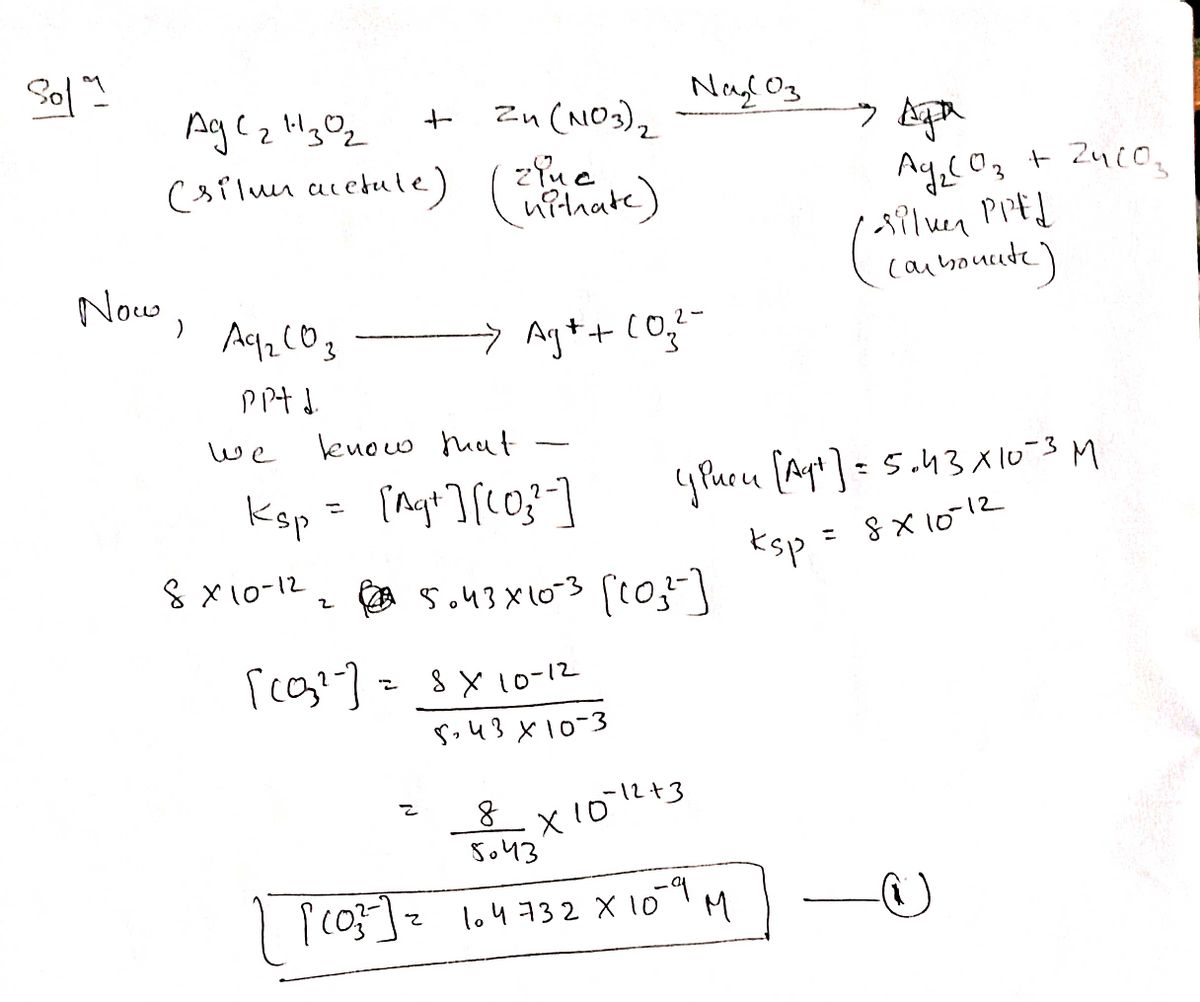 Solⁿ
AgC₂H₃O₂ + Zn(NO₃)₂ —Na₂CO₃→
Ag₂CO₃ + ZnCO₃
(silver acetate) (zinc nitrate) (silver pptd carbonate)
Now, Ag₂CO₃ ⟶ Ag⁺ + CO₃²⁻
pptd.
we know that —
Ksp = [Ag⁺][CO₃²⁻]
given [Ag⁺] = 5.43 × 10⁻³ M
Ksp = 8 × 10⁻¹²
8 × 10⁻¹² = 5.43 × 10⁻³ [CO₃²⁻]
[CO₃²⁻] = 8 × 10⁻¹² / 5.43 × 10⁻³
= 8/5.43 × 10⁻¹²⁺³
[CO₃²⁻] = 1.4732 × 10⁻⁹ M — ①